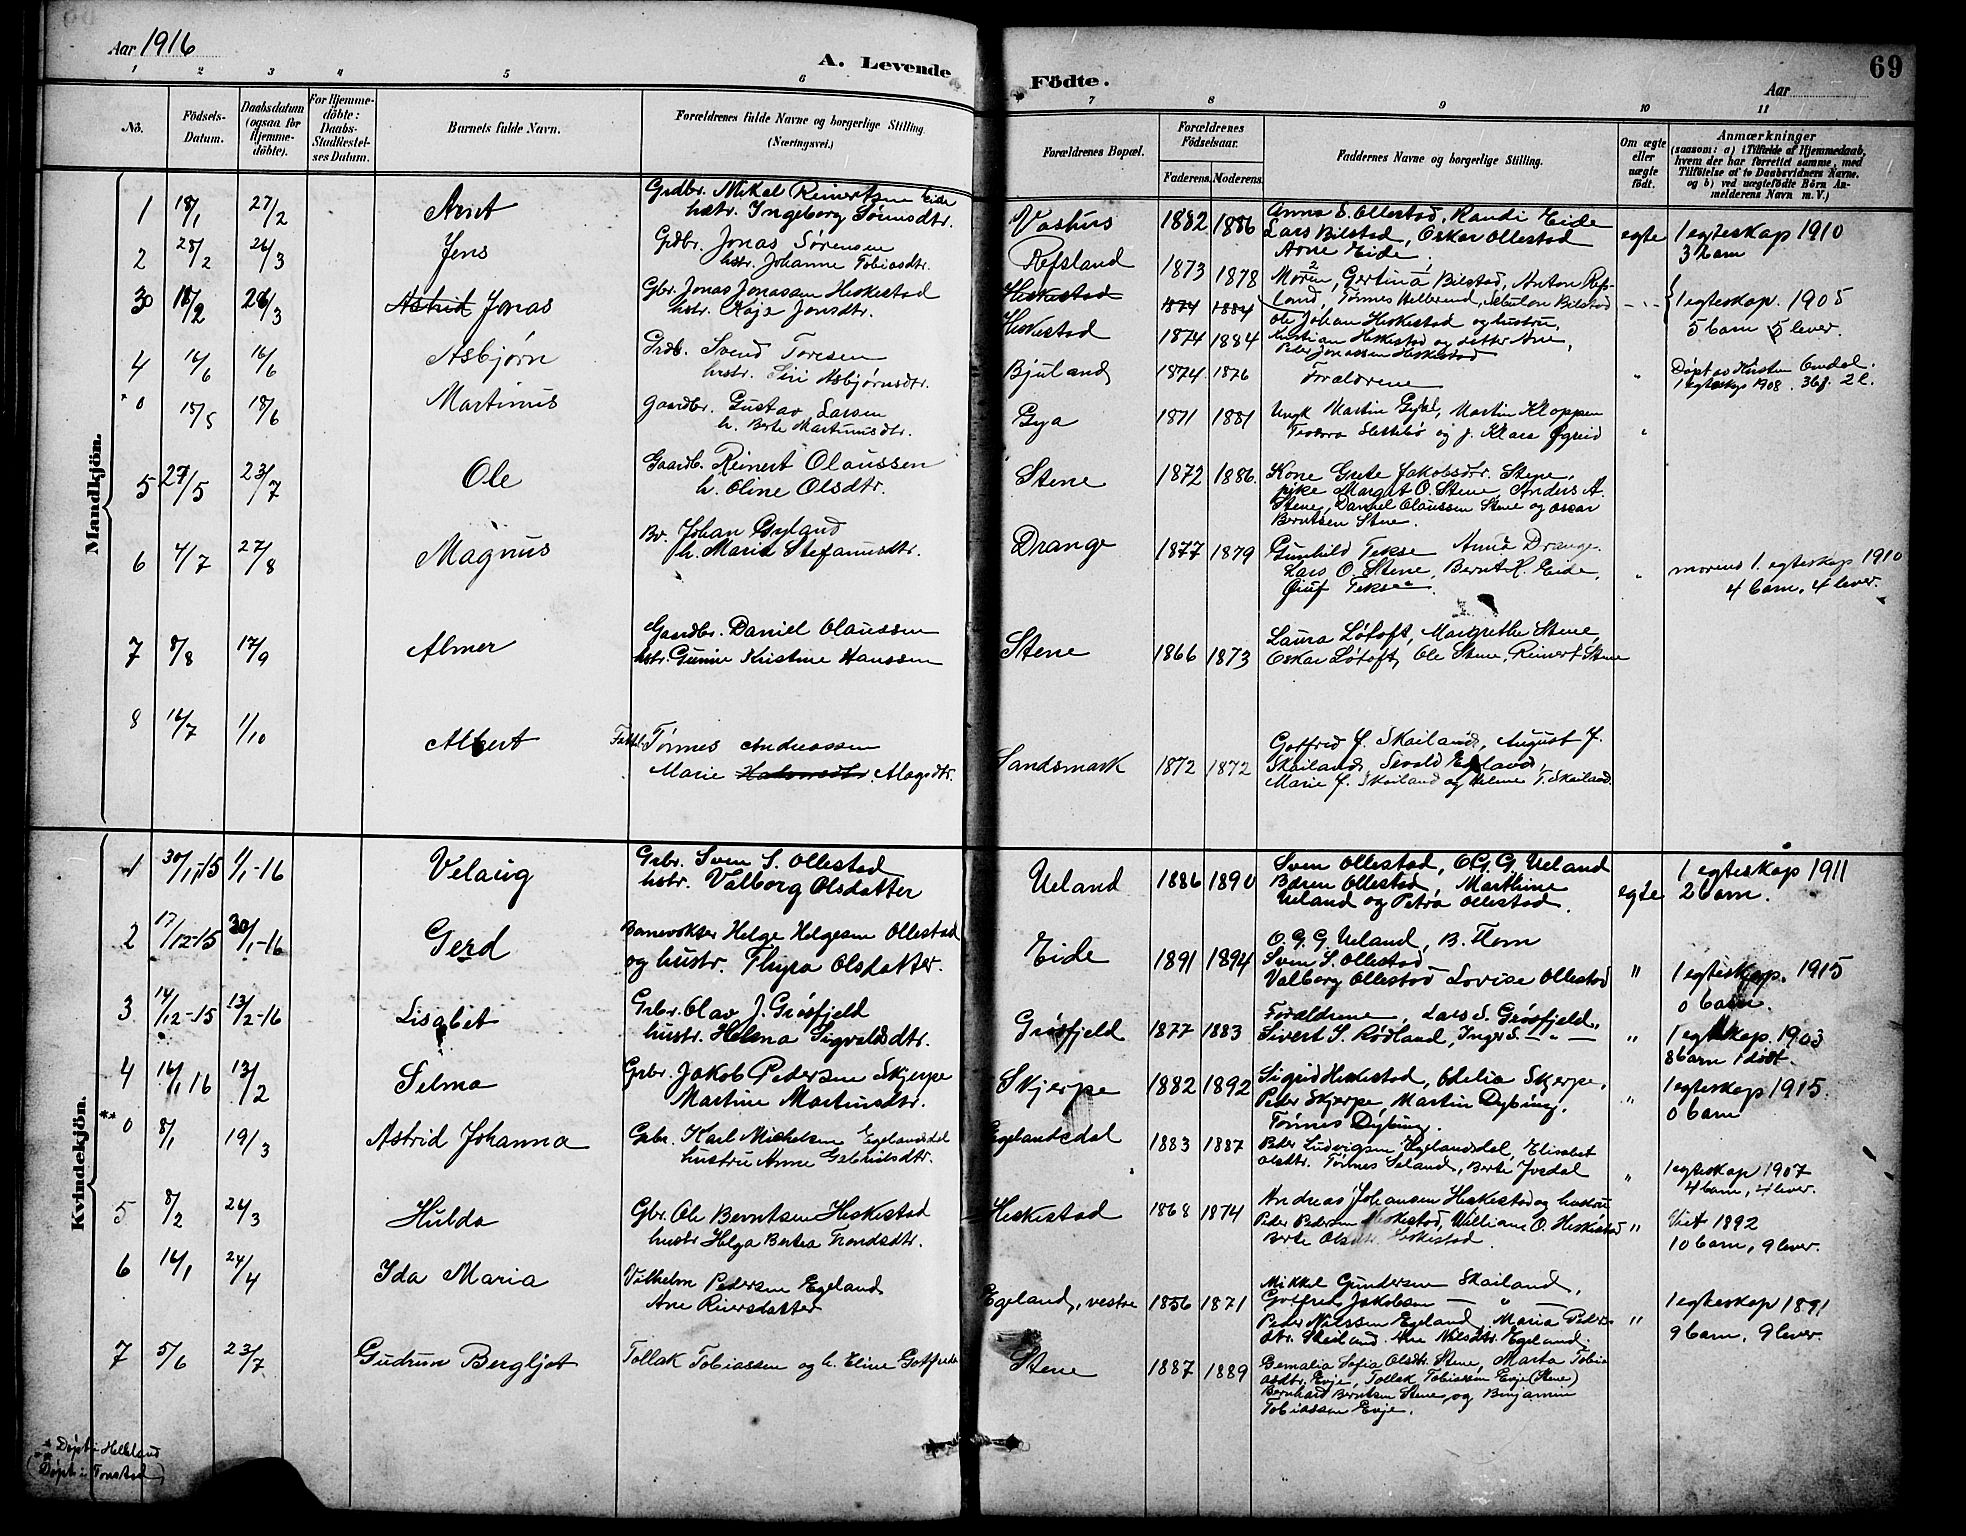 Aar 1916
A. Levende
Födte.
Aar
69
1 2 3 4 5 6 7 8 9 10 11
No.
Födsels-Datum.
Daabsdatum (ogsaa for Hjemme-döbte).
For Hjemme-döbte: Daabs-Stadfæstel-ses Datum.
Barnets fulde Navn.
Forældrenes fulde Navne og borgerlige Stilling. (Næringsvei.)
Forældrenes Bopæl.
Forældrenes Födselsaar.
Faderens. Moderens.
Faddernes Navne og borgerlige Stilling.
Om ægte eller uægte födt.
Anmærkninger
(saasom: a) i Tilfælde af Hjemmedaab, hvem der har forrettet samme, med Tilföielse af to Daabsvidners Navne. og b) ved uægtefödte Börn An-melderens Navn m. V.)
Mandkjön.
1 18/1 27/2 Arnt
Grdbr. Mikal Reinertsen Eide
hstr. Ingeborg Sørensdtr.
Vashus 1882 1886
Anna S. Ollestad, Randi Eide
Lars Bilstad, Oskar Ollestad
Arne Eide.
egte 1 egteskap 1910
3 barn
2 25/2 26/3 Jens
Grdbr. Jonas Sørensen
hstr. Johanne Tobiasdtr.
Refsland 1873 1878
Moren, Gertina Bilstad, Anton Refs-
land, Tønnes Hellerend, Bilstad
3 18/2 26/3 Astrid Jonas
Gbr. Jonas Jonassen Heskestad
hstr. Kaja Jonsdtr.
Heskestad 1874 1884
Heskestad 1874 1884
Ole Johan Heskestad og hustru,
Kristian Heskestad og datter Ane,
Peder Jonassen Heskestad
1 egteskap. 1905
5 barn 5 lever.
4 16/6 16/6 Asbjørn
Grdb. Svend Toresen
hustr. Siri Asbjørnsdtr.
Bjuland 1874 1876
Forældrene
"
Døpt av Kirsten Omdal.
1 egteskap 1908. 3 bf. 2 l.
* 0 15/5 18/6 Martinus
Gaardbr. Gustav Larsen
h. Berte Martinusdtr.
Gya 1871 1881
Ungk Martin Gya, Martin Kloppen
"
5 27/5 23/7 Ole
Gaardb. Reinert Olaussen
h. Oline Olsdtr.
Stene 1872 1886.
Kone Grete Jakobsdtr. Stene,
pike Margit O. Stene, Anders A.
Stene, Daniel Olaussen Stene og Oscar
Berntsen Stene.
6 4/7 27/8 Magnus
Br. Johan Gyland
h. Marie Stefanusdtr.
Drange 1877 1879
Gunhild Tekse Anna Drange.
Lars O. Stene, Bernt K. Eide,
Tekse.
"
morens 1. egteskap 1910
4 barn, 4 lever.
7 8/8 17/9 Almer
Gaardbr. Daniel Olaussen
hstr. Gunine Kristine Hanssen
Stene 1866 1873
Laura Løtoft, Margrethe Stene,
Oskar Løtoft, Ole Stene, Reinert Stene
8 16/7 1/10 Albert
Tønnes Andreassen
Marie Aagedtr.
Sandsmark 1872 1872
Gotfred J. Skailand, August J.
Skailand, Sevald Egeland,
Marie J. Skailand og Helene T. Skailand.
Kvindekjön.
1 30/11-15 9/1-16 Velaug
Grbr. Sven S. Ollestad
hstr. Valborg Olsdatter
Ueland 1886 1890
Sven Ollestad, O.G.G. Ueland
Børen Ollestad, Marthine
Ueland og Petra Ollestad.
egte 1 egteskap 1911
2 barn.
2 17/12-15 30/1-16 Gerd
Banevokter Helge Helgesen Ollestad
og hustr. Thyra Olsdatter.
Eide 1891 1894
O. G. G. Ueland, B. Flom
Sven S. Ollestad
Valborg Ollestad Lovise Ollestad
" 1 egteskap. 1915
0 barn.
3 14/12-15 13/2-16 Lisabet
Grbr. Olav J. Grøsfjeld
hustr. Helena Sigvaldsdtr.
Grøsfjeld 1877 1883
Forældrene, Lars S. Grøsfjeld.,
Sivert S. Rødland, Inger S. — " —
" 1 egteskap. 1903
8 barn 1 dødt.
4 16/1 16 13/2 Selma
Grbr. Jakob Pedersen Skjerpe
Martine Martinsdtr.
Skjerpe 1882 1892
Sigrid Heskestad, Odelia Skjerpe,
Peder Skjerpe, Martin Dybing,
Tønnes Dybing.
" 1 egteskap 1915.
0 barn
** 0 8/1 19/3 Astrid Johanna
Grbr. Karl Michelsen Egelandsdal
hustru Anne Gabrielsdtr.
Egelandsdal 1883 1887
Peder Ludvigsen Egelandsdal, Elisabet
Olsdtr. Tønnes Seland, Berte Ivesdal
" 1 egteskap 1907
4 barn, 4 lever.
5 8/2 26/3 Hulda
Gbr. Ole Berntsen Heskestad
hustr Helga Bertea Trondsdtr.
Heskestad 1868 1874
Andreas Johansen Heskestad og hustru
Peder Pedersen Heskestad, William O. Heskestad
Berte Olsdtr. Heskestad.
" Viet 1892
10 barn, 9 lever.
6 16/1 24/4 Ida Maria
Vilhelm Pedersen Egeland
Ane Reiersdatter
Egeland, vestre 1856 1871
Mikkel Gundersen Skailand,
Gotfred Jakobsen — " —
Peder Nilssen Egeland, Maria Peders-
dtr. Skailand. Ane Nilsdtr. Egeland.
" 1 egteskap 1891
9 barn, 9 lever.
7 5/6 23/7 Gudrun Bergljot
Tollak Tobiassen og h. Eline Gotfreds
Stene 1887 1889
Bernalia Sofia Olsdtr. Stene, Marta Tobia
asdtr. Evje, Tollak Tobiassen Evje (Stene)
Bernhard Berntsen Stene, og Benjamin
Tobiassen Evje.
* Døpt i Helleland
** Døpt i Tonstad